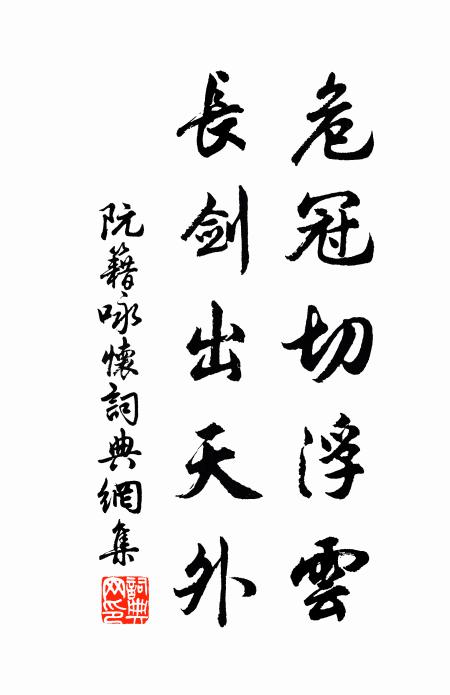 危冠切浮雲
長劍出天外
阮籍咏懷詞典網集
詞典網印